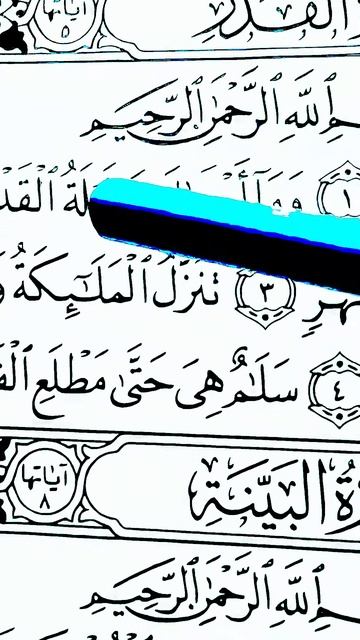 القدر آياتها ٥
ٱللَّهِ ٱلرَّحْمَٰنِ ٱلرَّحِيمِ
١ لَةُ ٱلْقَدْ
هْرٍ ٣ تَنَزَّلُ ٱلْمَلَٰٓئِكَةُ
٤ سَلَٰمٌ هِىَ حَتَّىٰ مَطْلَعِ
ةُ البَيِّنَةِ آياتها ٨
ٱللَّهِ ٱلرَّحْمَٰنِ ٱلرَّحِيمِ